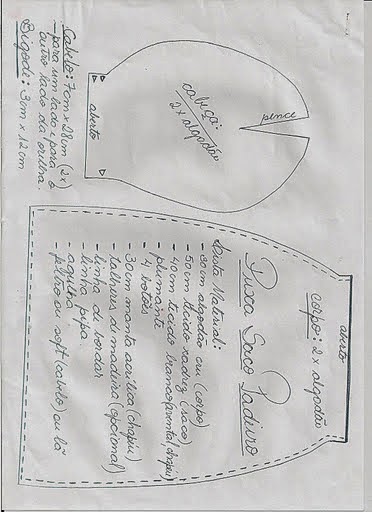 cabeça:
2x algodão
pence
aberto
Cabelo: 7cm x 28cm (2x)
- para um lado e para o
outro lado da orelha.
Bigode: 3cm x 12cm
aberto
corpo: 2x algodão
Puxa Saco Padeiro
Lista Material:
- 30cm algodão cru (corpo)
- 50cm tecido xadrez (saco)
- 40cm tecido branco (avental chapéu)
- plumante
- 4 botões
- 30cm manta acrílica (chapéu)
- talheres de madeira (opcional)
- linha de bordar
- linha pipa
- agulha
- feltro ou soft (cabelo) ou lã